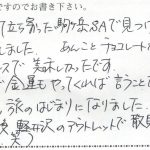 ですのでお書き下さい。
て立ち寄った駒ヶ岳SAで見つけ
しました。 あんこ チョコレート
スで美味しかったです。
金屋もやってくれば 言うこと
旅のはじまりになりました。
軽井沢のアウトレットで散財
笑